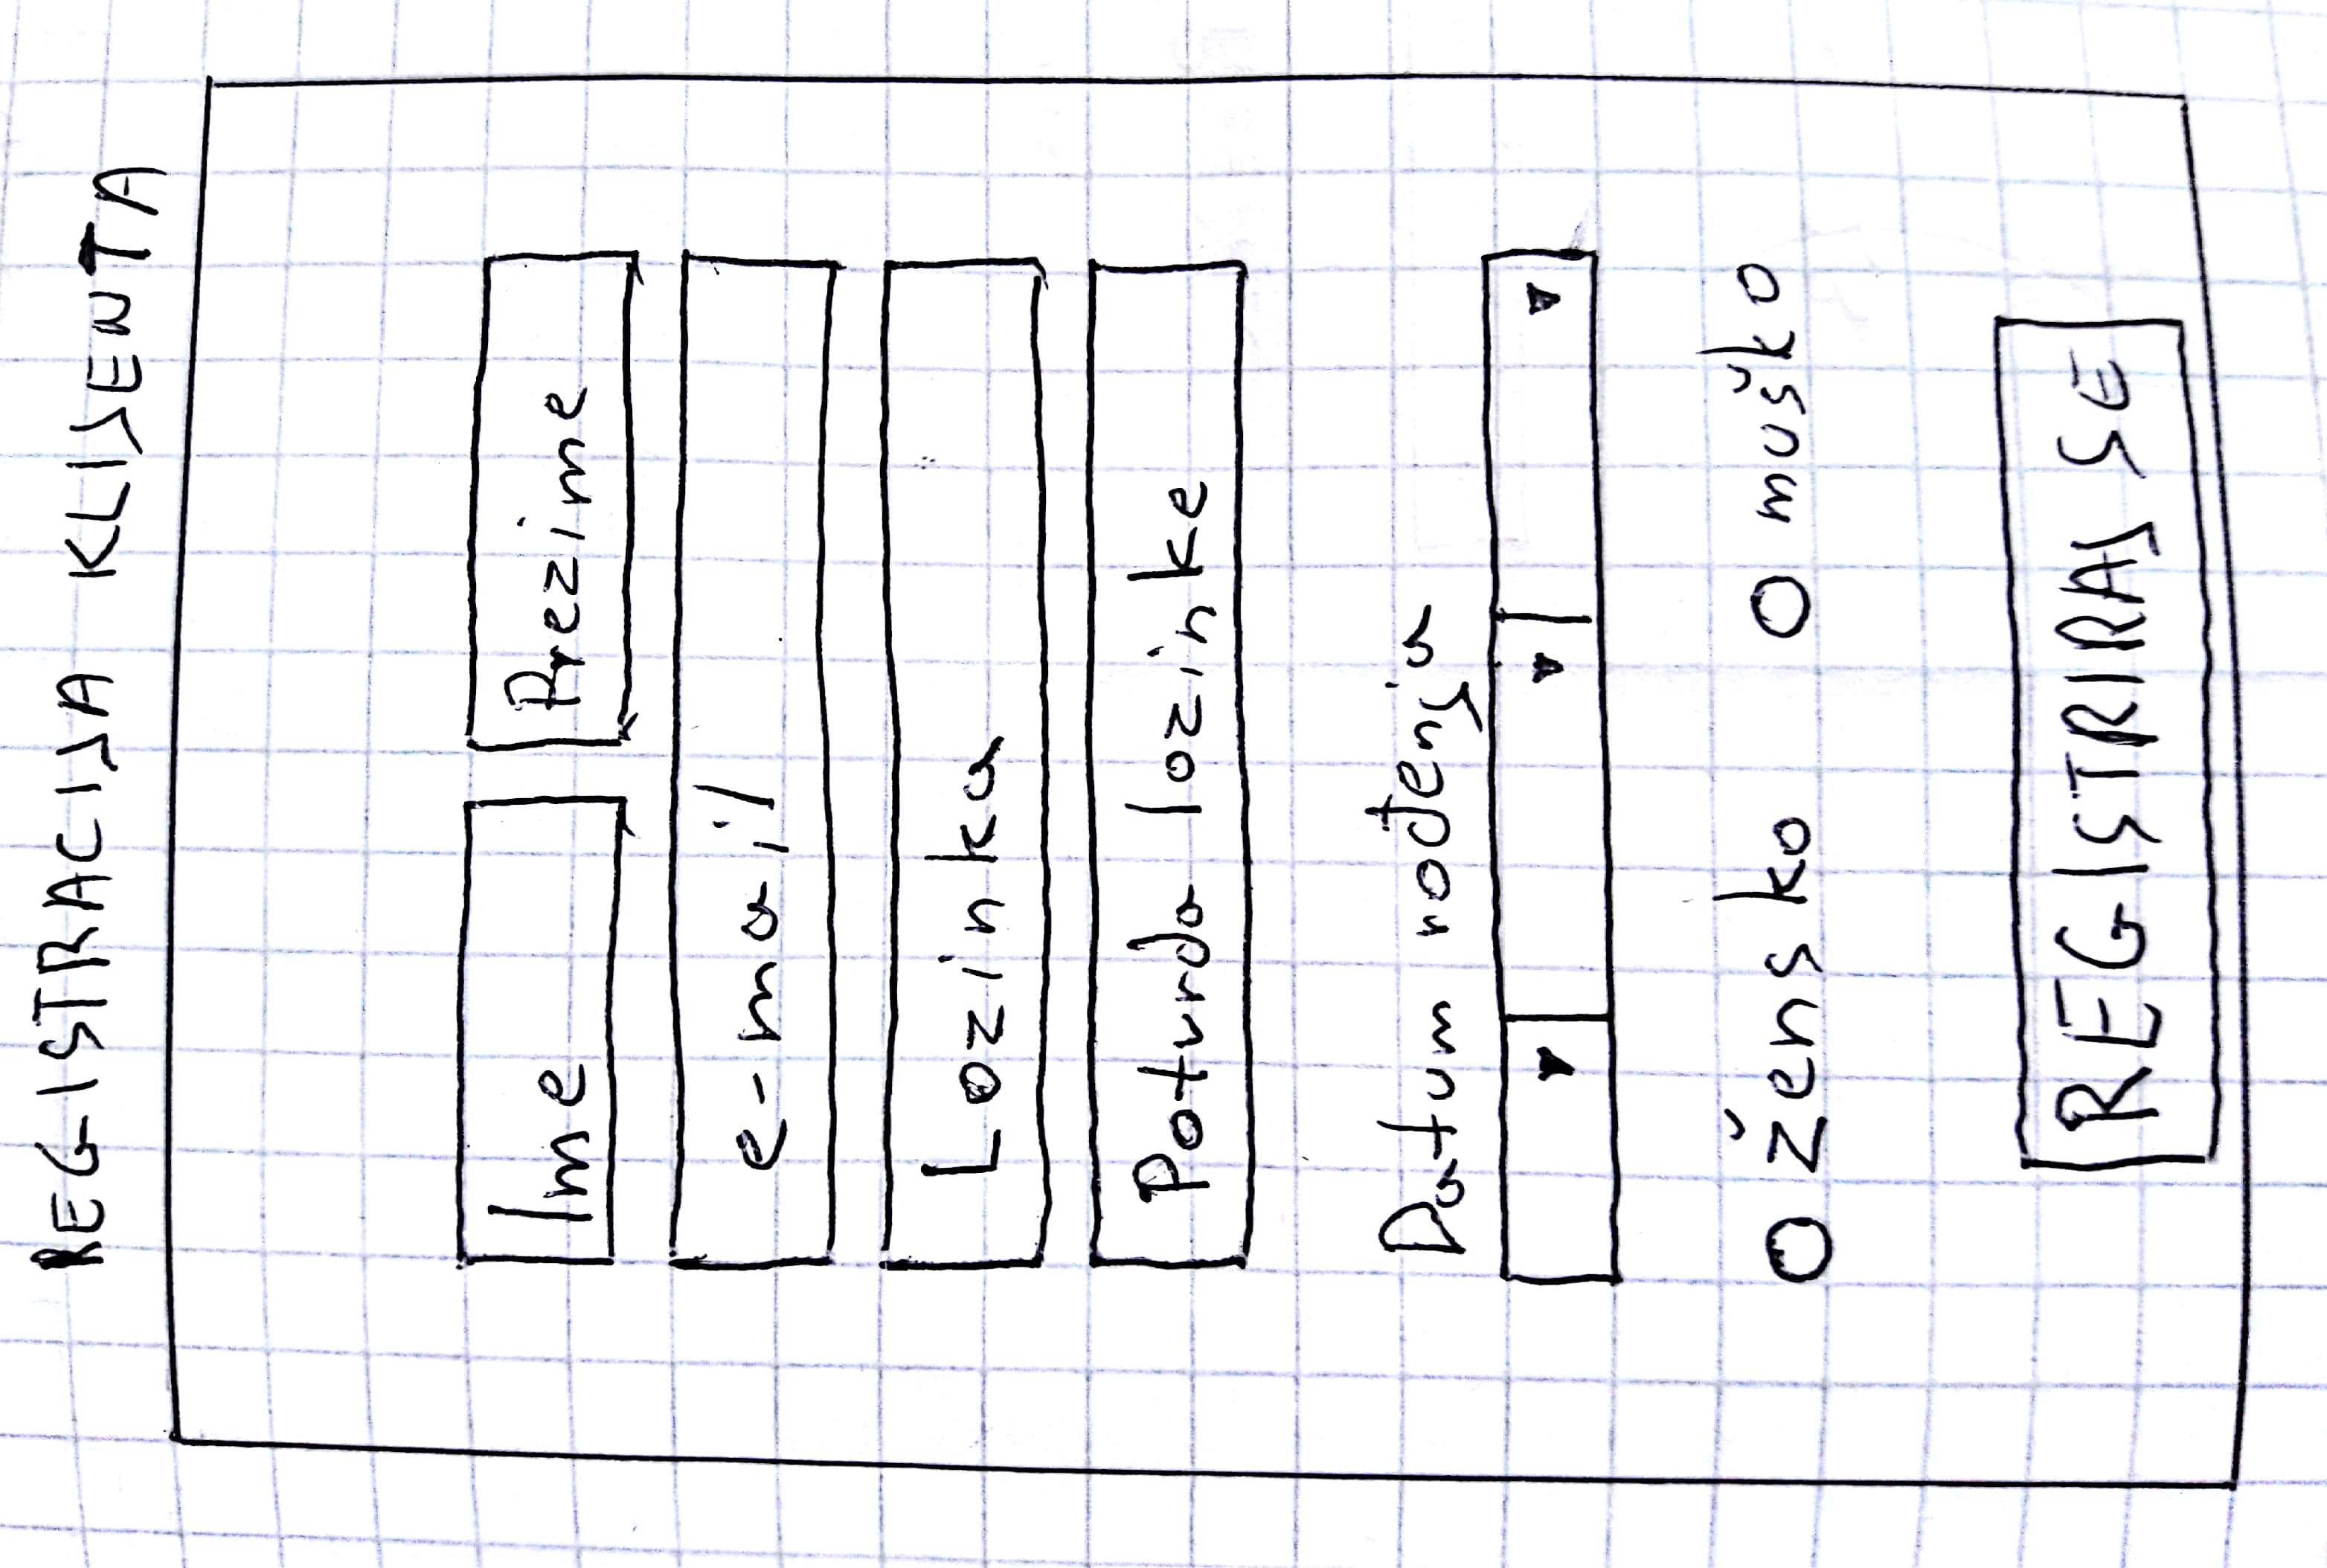 REGISTRACIJA KLIJENTA
Ime Prezime
e-mail
Lozinka
Potvrda lozinke
Datum rođenja
žensko muško
REGISTRIRAJ SE